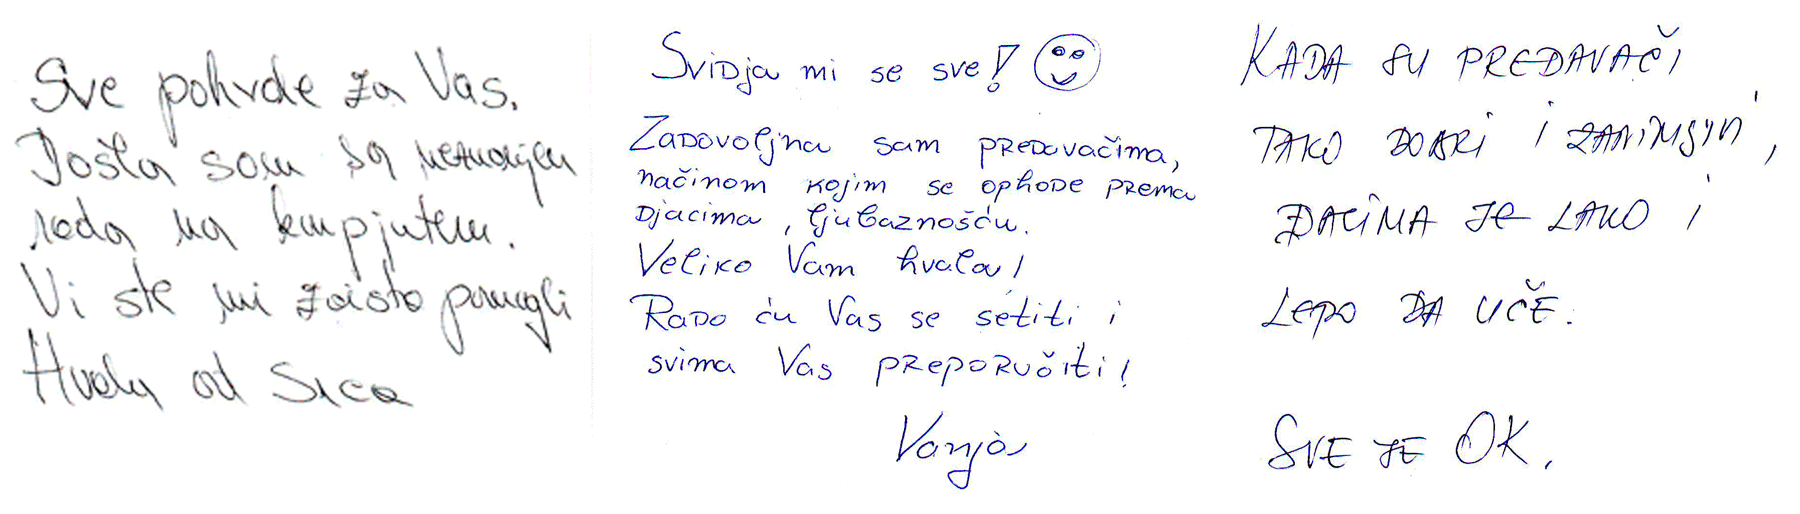 Sve pohvale za Vas.
Došla sam sa neznanjem
rada na kompjuteru.
Vi ste mi zaista pomogli
Hvala od srca
Svidja mi se sve!
Zadovoljna sam predavačima,
načinom kojim se ophode prema
djacima, ljubaznošću.
Veliko Vam hvala!
Rado ću Vas se setiti i
svima Vas preporučiti!
Vanja
KADA SU PREDAVAČI
TAKO DOBRI I ZANIMLJIVI,
ĐACIMA JE LAKO I
LEPO DA UČE.
SVE JE OK.